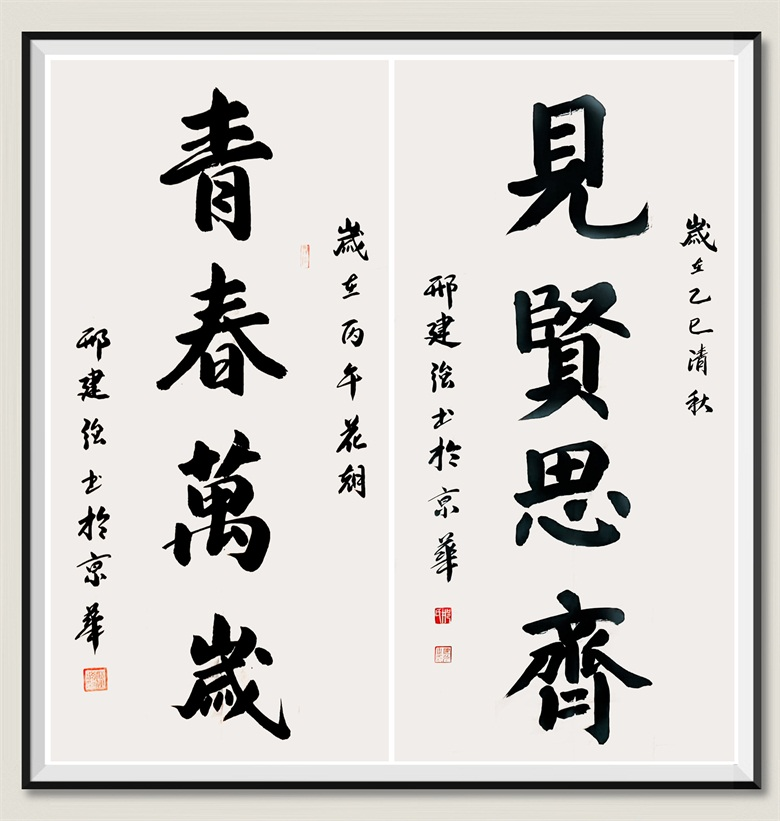 歲在乙巳清秋
見賢思齊
邢建強书於京華
歲在丙午花朝
青春萬歲
邢建強书於京華